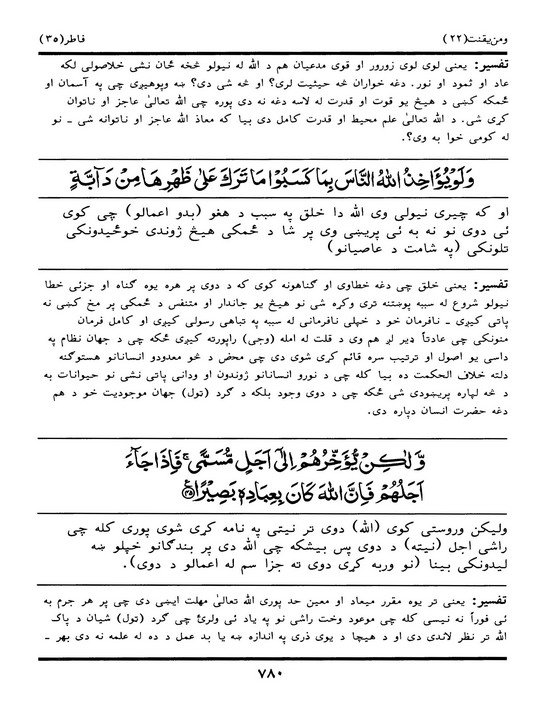 ومن يقنت (٢٢) فاطر (٣٥)
تفسير: يعنی لوی لوی زورور او قوی مدعيان هم د الله له نيولو څخه ځان نشی خلاصولی لکه
عاد او ثمود او نور. دغه خواران څه حيثيت لری؟ او څه شی دی؟ ښه وپوهيږی چی په آسمان او
ځمکه کښی د هيڅ يو قوت او قدرت له لاسه دغه نه دی پوره چی الله تعالیٰ عاجز او ناتوان
کړی شی. د الله تعالیٰ علم محيط او قدرت کامل دی بيا که معاذ الله عاجز او ناتوانه شی ـ نو
له کومی خوا به وی؟.
وَلَوْ يُؤَاخِذُ اللهُ النَّاسَ بِمَا كَسَبُوْا مَا تَرَكَ عَلٰى ظَهْرِهَا مِنْ دَآبَّةٍ
او که چيری نيولی وی الله دا خلق په سبب د هغو (بدو اعمالو) چی کوی
ئی دوی نو نه به ئی پريښی وی پر شا د ځمکی هيڅ ژوندی خوځيدونکی
تلونکی (په شامت د عاصيانو)
تفسير: يعنی خلق چی دغه خطاوی او گناهونه کوی که د دوی پر هره يوه گناه او جزئی خطا
نيولو شروع له سببه پوښتنه تری وکړه شی نو هيڅ يو جاندار او متنفس د ځمکی پر مخ کښی نه
پاتی کيږی ـ نافرمان خو د خپلی نافرمانی له سببه په تباهی رسولی کيږی او کامل فرمان
منونکی چی عادتاً ډير لږ هم وی د قلت له امله (وجی) راپورته کيږی ځکه چی د جهان نظام په
داسی يو اصول او ترتيب سره قائم کړی شوی دی چی محض د څو معدودو انسانانو هستوگنه
دلته خلاف الحکمت ده بيا کله چی د نورو انسانانو ژوندون او ودانی پاتی نشی نو حيوانات به
د څه لپاره پريښودی شی ځکه چی د دوی وجود بلکه د گرد (ټول) جهان موجوديت خو د هم
دغه حضرت انسان دپاره دی.
وَّلٰكِنْ يُّؤَخِّرُهُمْ اِلٰٓى اَجَلٍ مُّسَمًّى ۚ فَاِذَا جَآءَ
اَجَلُهُمْ فَاِنَّ اللهَ كَانَ بِعِبَادِهٖ بَصِيْرًا ﴿٤٥﴾
وليکن وروستی کوی (الله) دوی تر نيټی په نامه کړی شوی پوری کله چی
راشی اجل (نيټه) د دوی پس بيشکه چی الله دی پر بندگانو خپلو ښه
ليدونکی بينا (نو وربه کړی دوی ته جزا سم له اعمالو د دوی).
تفسير: يعنی تر يوه مقرر ميعاد او معين حد پوری الله تعالیٰ مهلت ايښی دی چی پر هر جرم به
ئی فوراً نه نيسی کله چی موعود وخت راشی نو په ياد ئی ولرئ چی گرد (ټول) شيان د پاک
الله تر نظر لاندی دی او د هيچا د يوی ذری په اندازه ښه يا بد عمل د ده له علمه نه دی بهر ـ
٧٨٠